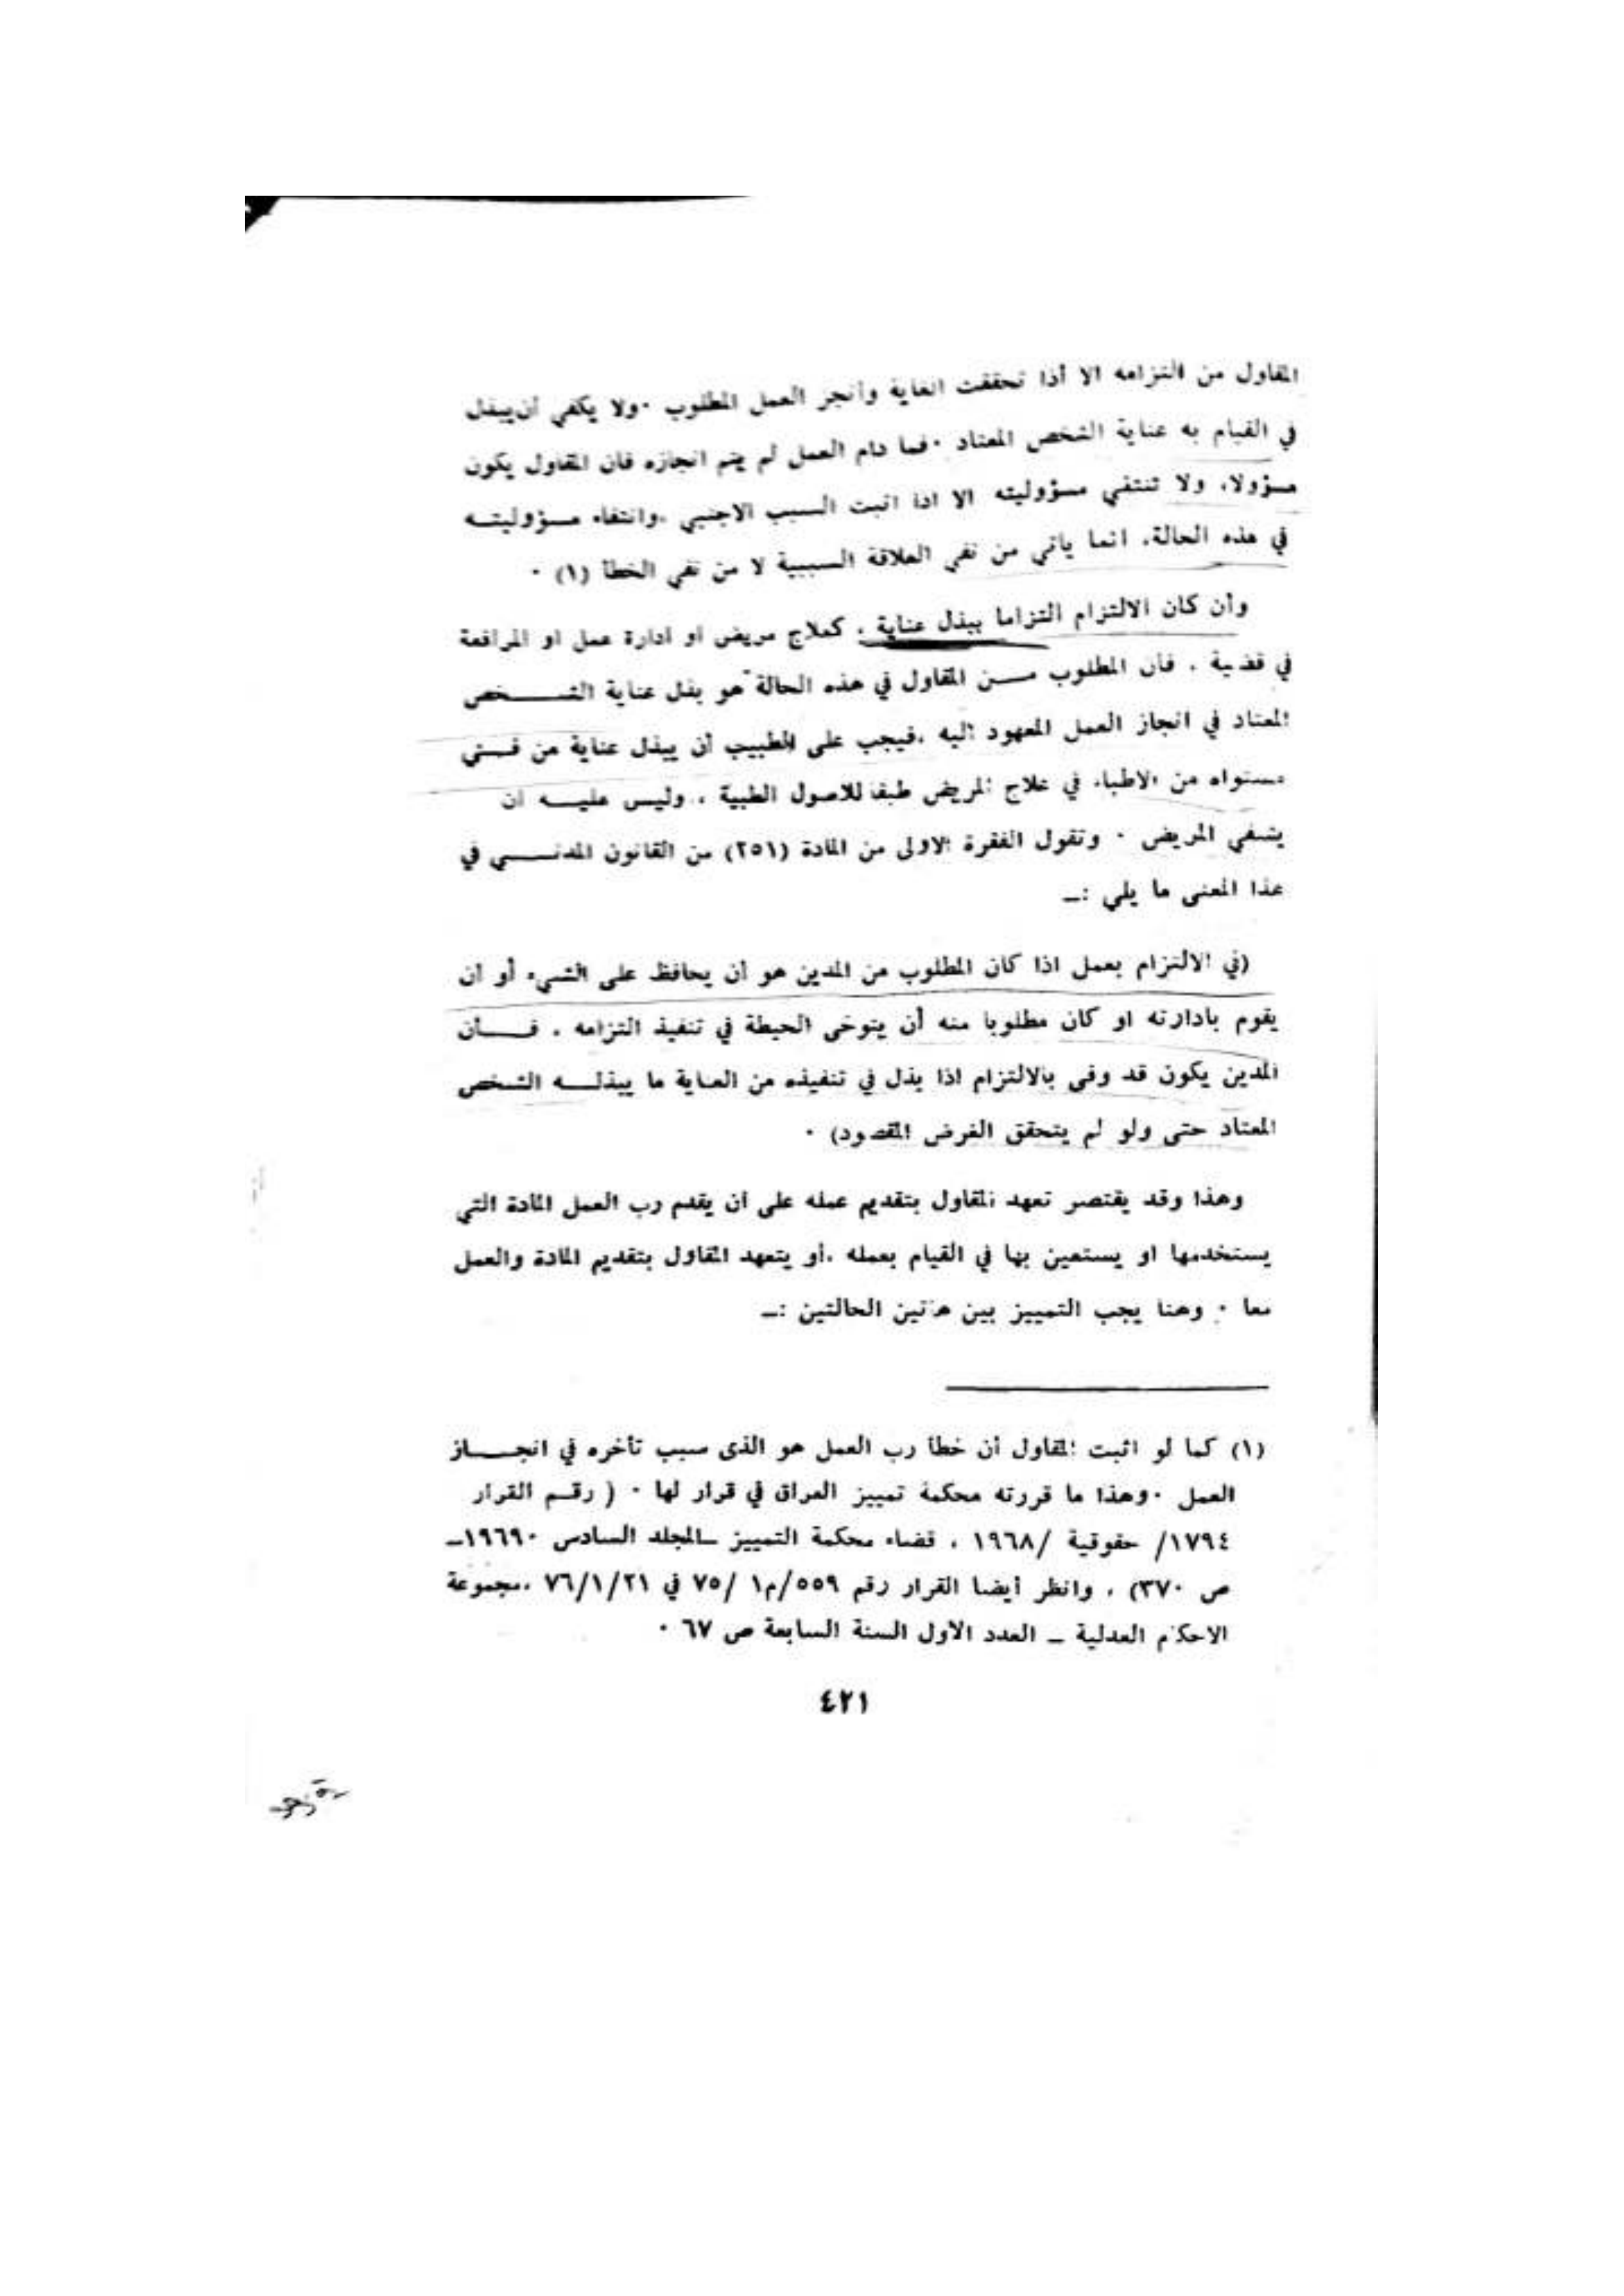 المقاول من التزامه الا أذا تحققت الغاية وأنجز العمل المطلوب ٠ولا يكفي أن يبذل
في القيام به عناية الشخص المعتاد ٠فما دام العمل لم يتم انجازه فان المقاول يكون
مسؤولا، ولا تنتفي مسؤوليته الا اذا اثبت السبب الاجنبي ،وانتفاء مسؤوليته
في هذه الحالة، انما ياتي من نفي العلاقة السببية لا من نفي الخطا (١) ٠
وأن كان الالتزام التزاما ببذل عناية ، كعلاج مريض او ادارة عمل او المرافعة
في قضية ، فأن المطلوب مـــن المقاول في هذه الحالة هو بذل عناية الشـــــخص
المعتاد في انجاز العمل المعهود اليه ،فيجب على الطبيب أن يبذل عناية من فــي
مستواه من الاطباء في علاج المريض طبقا للاصول الطبية ، وليس عليـــه ان
يشفي المريض ٠ وتقول الفقرة الاولى من المادة (٢٥١) من القانون المدنـــــي في
هذا المعنى ما يلي :ـ
(في الالتزام بعمل اذا كان المطلوب من المدين هو ان يحافظ على الشيء أو ان
يقوم بادارته او كان مطلوبا منه أن يتوخى الحيطة في تنفيذ التزامه ، فــــأن
المدين يكون قد وفى بالالتزام اذا بذل في تنفيذه من العناية ما يبذلـــه الشخص
المعتاد حتى ولو لم يتحقق الغرض المقصود) ٠
وهذا وقد يقتصر تعهد المقاول بتقديم عمله على ان يقدم رب العمل المادة التي
يستخدمها او يستعين بها في القيام بعمله ،أو يتعهد المقاول بتقديم المادة والعمل
معا ٠ وهنا يجب التمييز بين هاتين الحالتين :ـ
(١) كما لو اثبت المقاول أن خطأ رب العمل هو الذى سبب تأخره في انجـــــاز
العمل ٠وهذا ما قررته محكمة تمييز العراق في قرار لها ٠ ( رقـم القرار
١٧٩٤/ حقوقية /١٩٦٨ ، قضاء محكمة التمييز ـالمجلد السادس ١٩٦٩٠ـ
ص ٣٧٠) ، وانظر أيضا القرار رقم ٥٥٩/م١ /٧٥ في ٧٦/١/٢١ ،مجموعة
الاحكام العدلية ـ العدد الاول السنة السابعة ص ٦٧ ٠
٤٢١